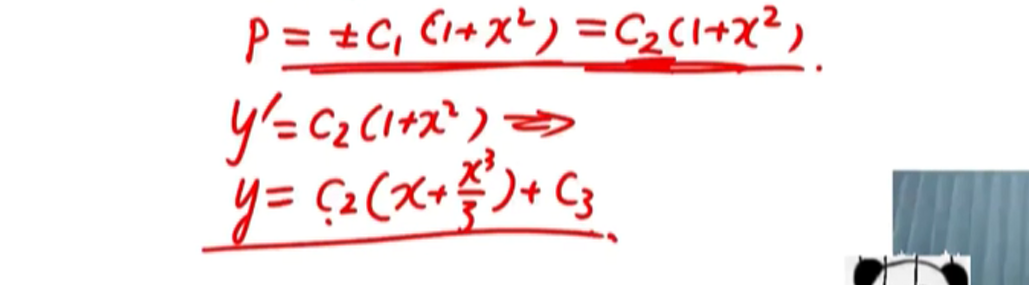 P = ±C₁(1+x²) = C₂(1+x²).
y′ = C₂(1+x²) ⇒
y = C₂(x + x³/3) + C₃.